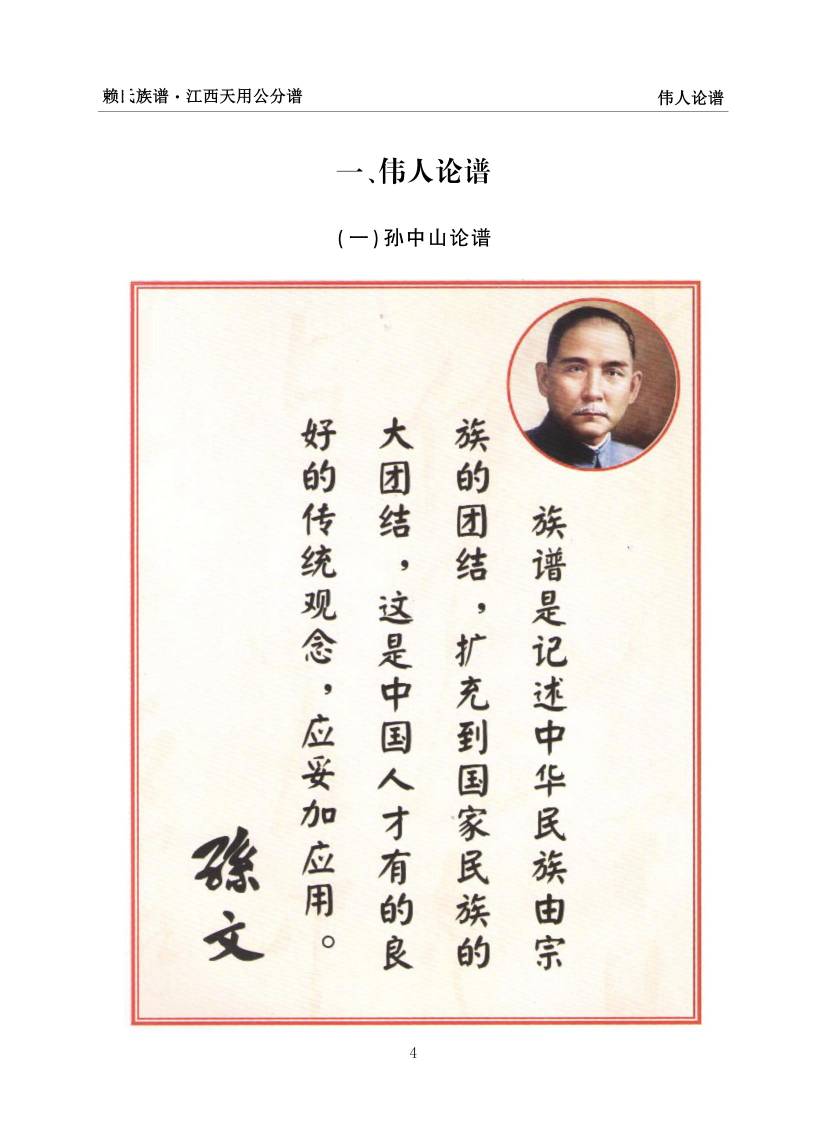 赖氏族谱·江西天用公分谱
伟人论谱
一、伟人论谱
(一)孙中山论谱
族谱是记述中华民族由宗
族的团结，扩充到国家民族的
大团结，这是中国人才有的良
好的传统观念，应妥加应用。
孫文
4